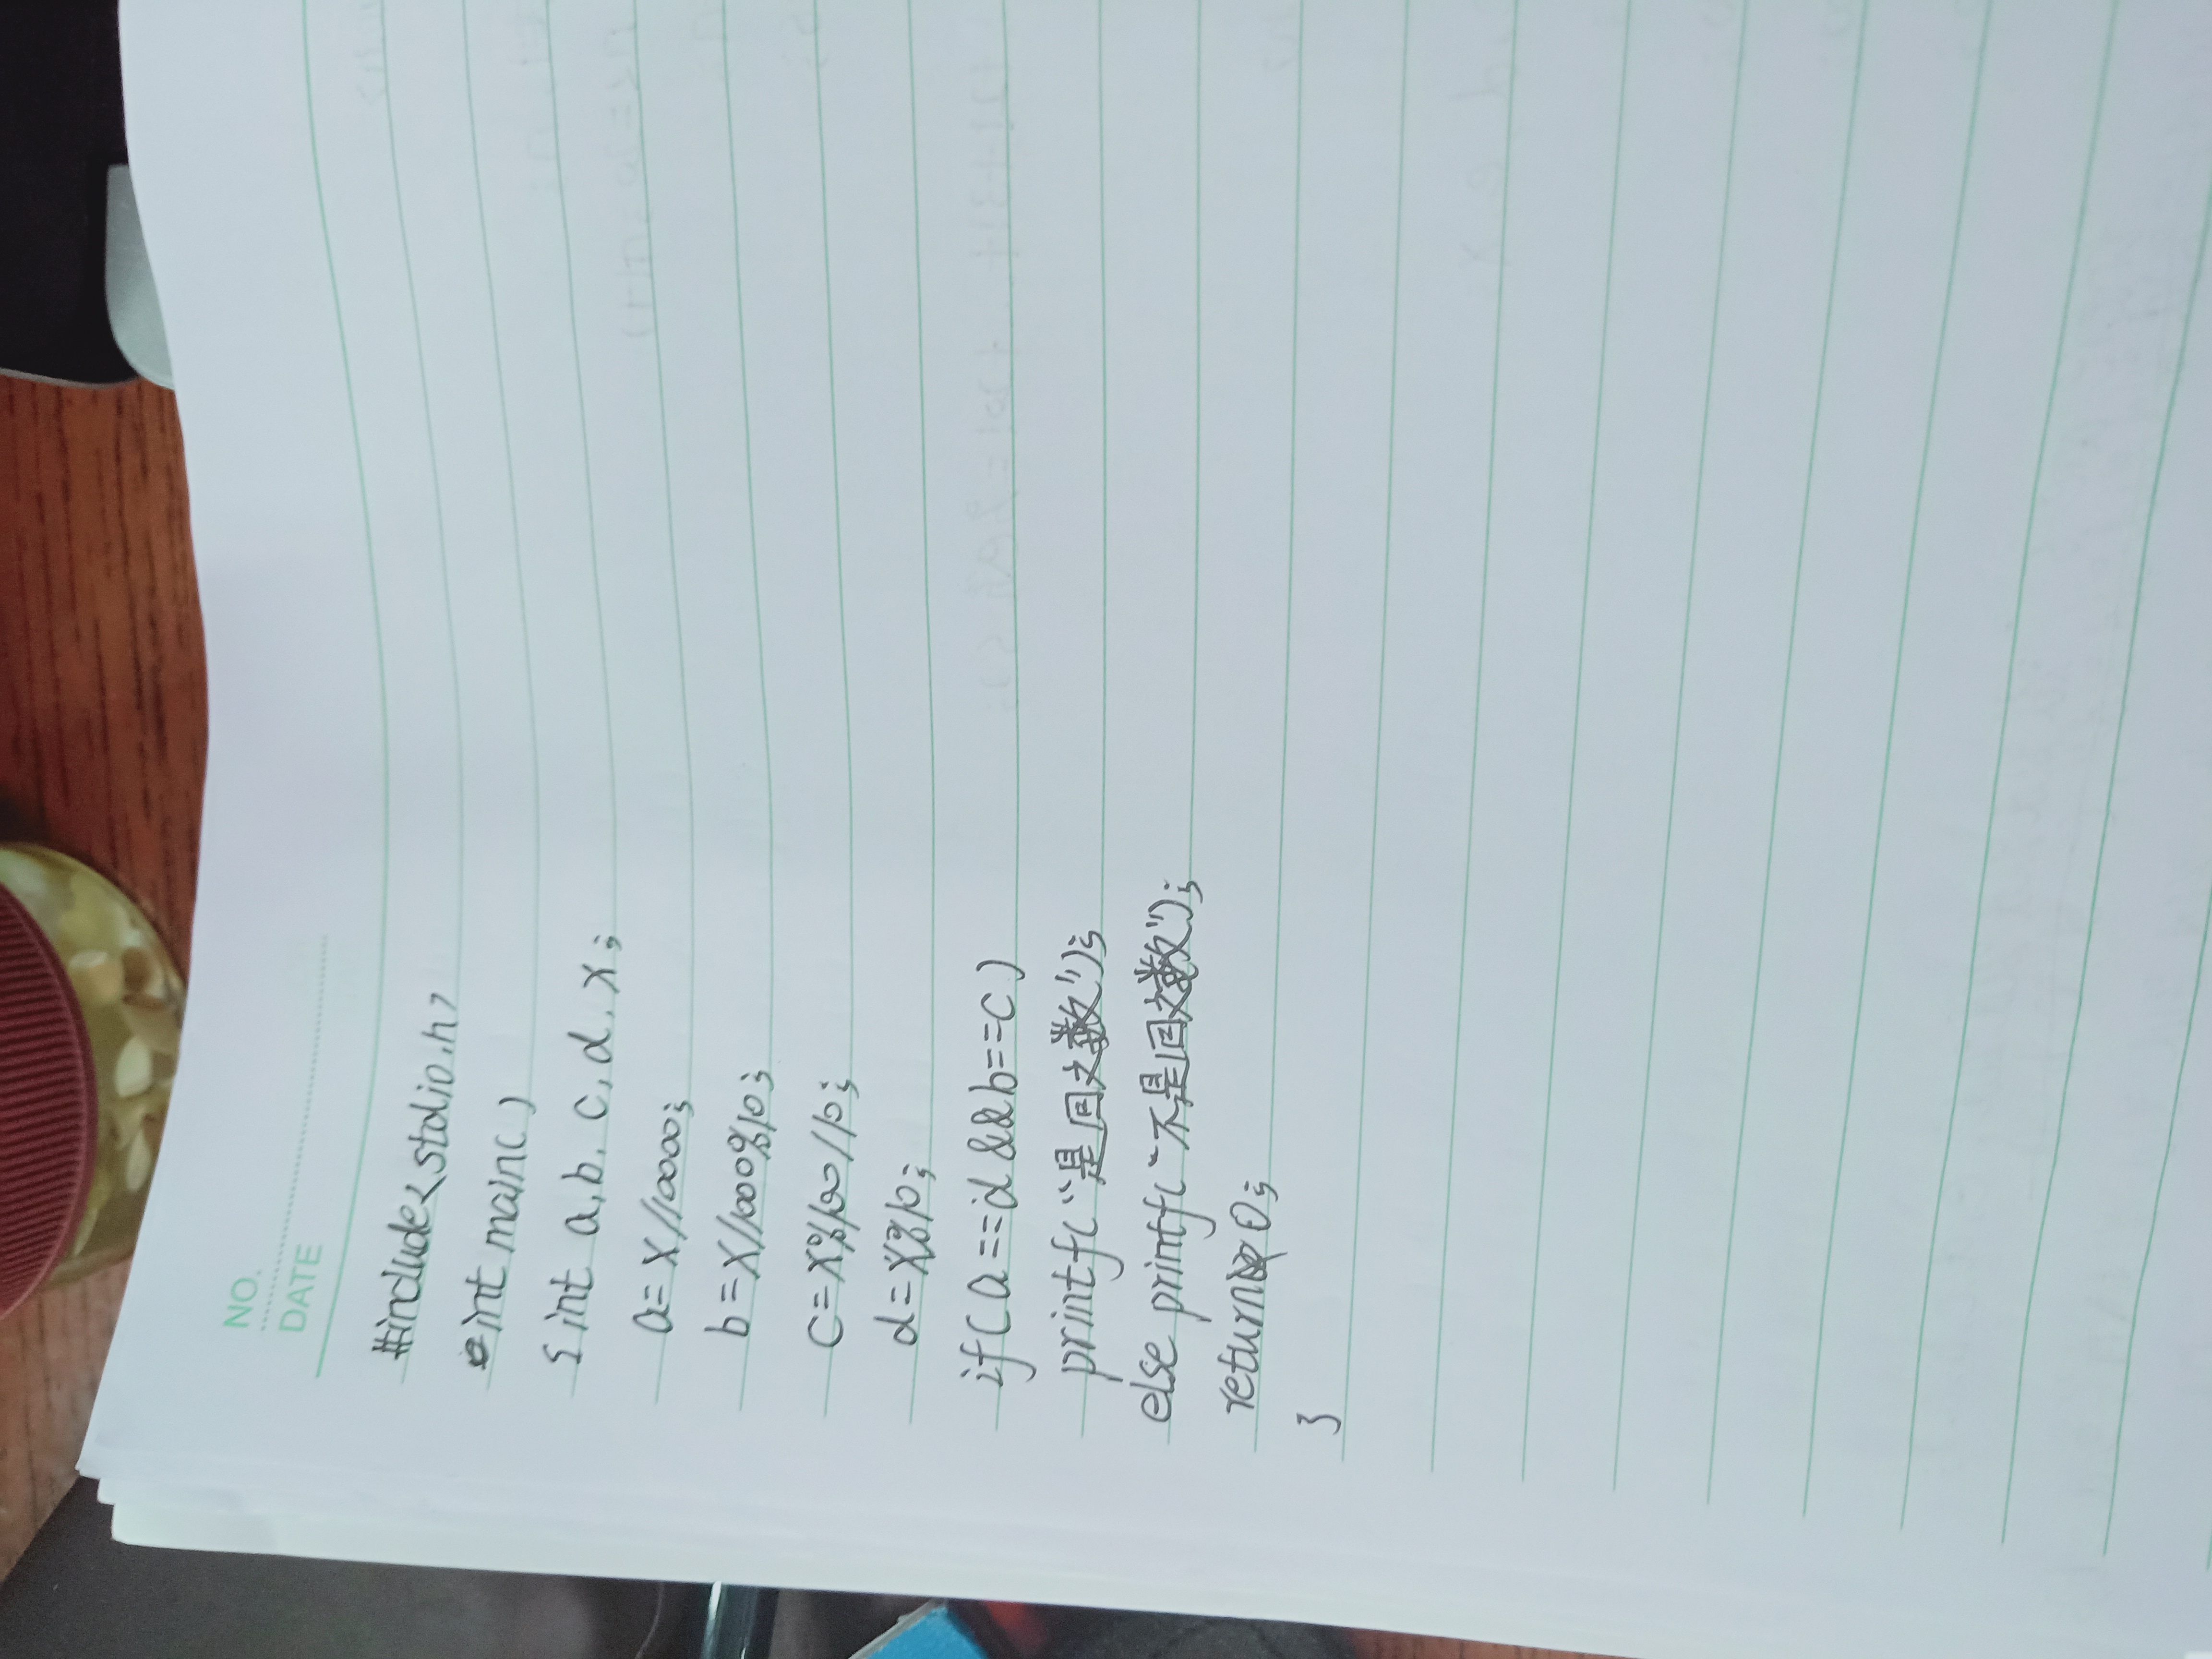 NO.
DATE
#include<stdio.h>
int main()
{int a,b,c,d,x;
a=x/10000;
b=x/1000%10;
c=x%100/10;
d=x%10;
if(a==d&&b==c)
printf("是回文数");
else printf("不是回文数");
return 0;
}